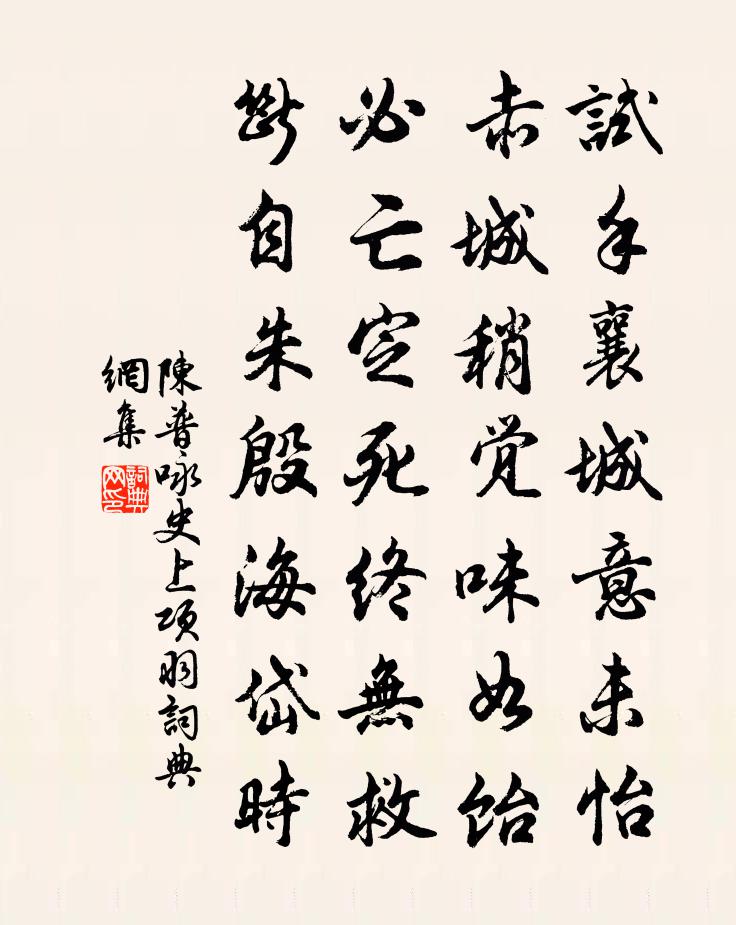 試手襄城意未怡
赤城稍覚味如飴
必亡定死終無救
斷自朱殷海岱時
陳普咏史上項羽詞典
網集
詞典
网印